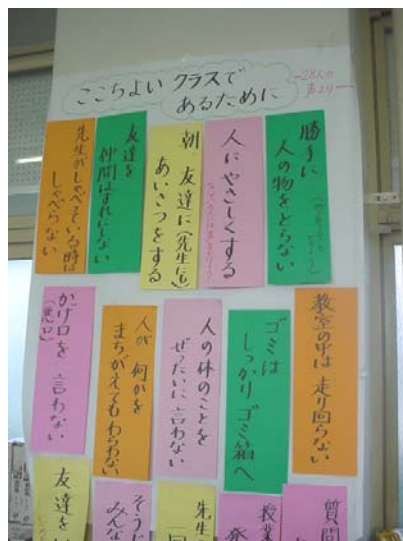 ここちよい クラスで
あるために
28人の
声より
勝手に
人の物をとらない
人にやさしくする
朝 友達に(先生にも)
あいさつをする
友達を
仲間はずれにしない
先生がしゃべっている時は
しゃべらない
教室の中は 走り回らない
ゴミは
しっかりゴミ箱へ
人の体のことを
ぜったいに言わない
人が 何かを
まちがえてもわらわない
かげ口を 言わない
(悪口)
質問
授業
発
先生
そうじ
みんな
友達を